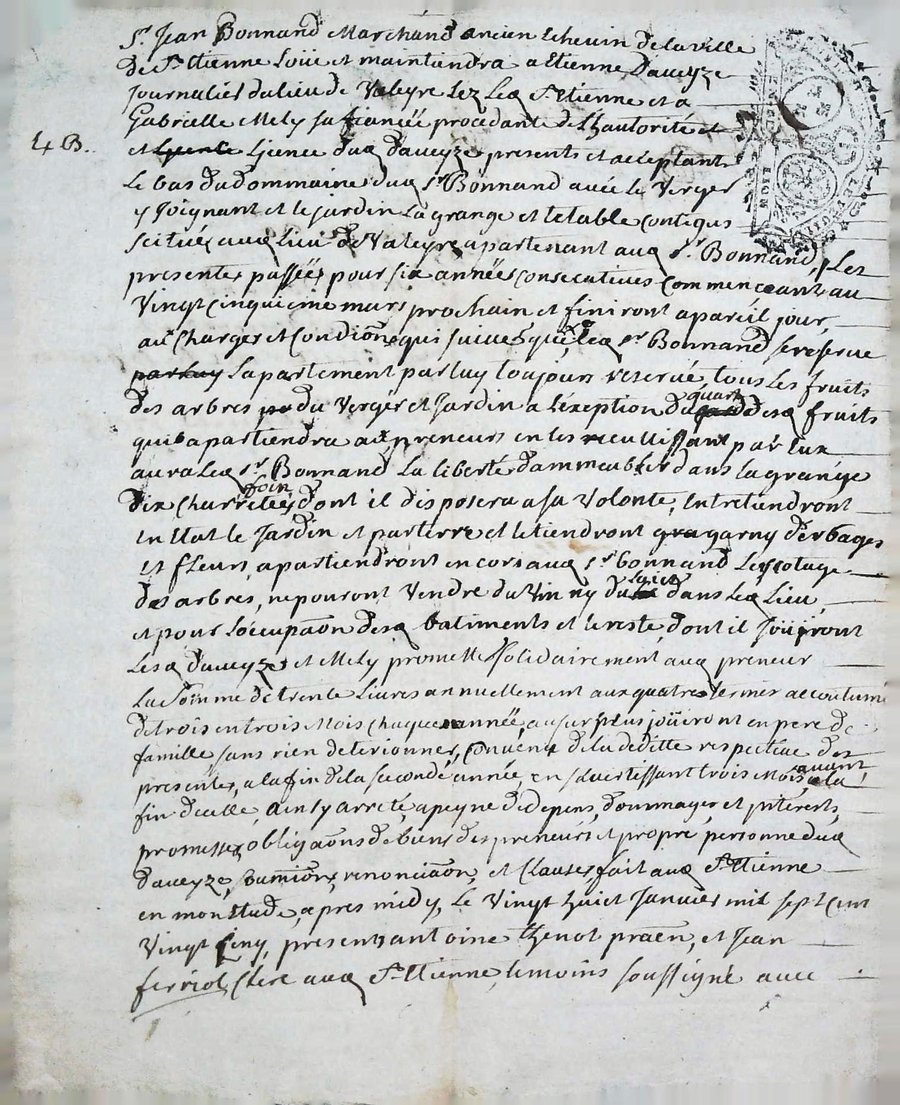 Sr. Jean Bonnand Marchand ancien Echevin de la ville
de St. Etienne loüe et maintiendra a Etienne Daveyze
Journalier du lieu de Valeyre lez led. St. Etienne et a
Gabrielle Mely sa fiancée procedante de l'hautorité et
4 B.
et licence dud. Daveyze presents et acceptants
Le bas du dommaine dud. Sr. Bonnand avec le Verger
y Joignant et le jardin la grange et Etable contigus
scitués aud. Lieu de Valeyre apartenant aud. Sr. Bonnand, Les
presentes passées pour six années consecutives commenceant au
Vingt cinquieme mars prochain et finiront a pareil jour,
aux Charges et Condiõns qui suivent que led. Sr. Bonnand se reserve
par luy L'apartement par luy toujours reservé, tous Les fruits
des arbres du Verger et Jardin a l'exeption du quart desd. fruits
qui apartiendra aux preneurs en les recuillissant par Eux
aura led. Sr. Bonnand La liberté d'ammeubler dans la grange
dix Charretées foin dont il disposera a sa Volonté, Entretiendront
En Etat le Jardin et parterre et le tiendront garny d'erbages
et fleurs, apartiendront encor aud. Sr. bonnand Les cotage
des arbres, ne pouront Vendre du Vin ny dans led. Lieu,
et pour L'occupaõn desd. batiments et le reste dont il Joüiront
Lesd. Daveyze et Mely promette solidairement aud. preneur
La Somme de trente Livres annuellement aux quatre termes accoutumé
de trois en trois Mois chaque année, au surplus joüiront en pere de
famille sans rien deteriorner, Convenu de la deditte respective des
presentes, a la fin de la seconde année, en s'avertissant trois Mois avant la
fin d'icelle, ainsy arreté, a peyne de depens, dommages et interests,
promesses, obligaõns de biens des preneurs et propre personne dud.
Daveyze, soumiõns, renonciaõn, et Clauses, fait aud. St. Etienne
en mon Etude, apres midy, Le Vingt huict Janvier mil sept Cent
Vingt Cinq, presents antoine thenot praẽn, et Jean
ferriol Clerc aud. St. Etienne, temoins soussigné avec